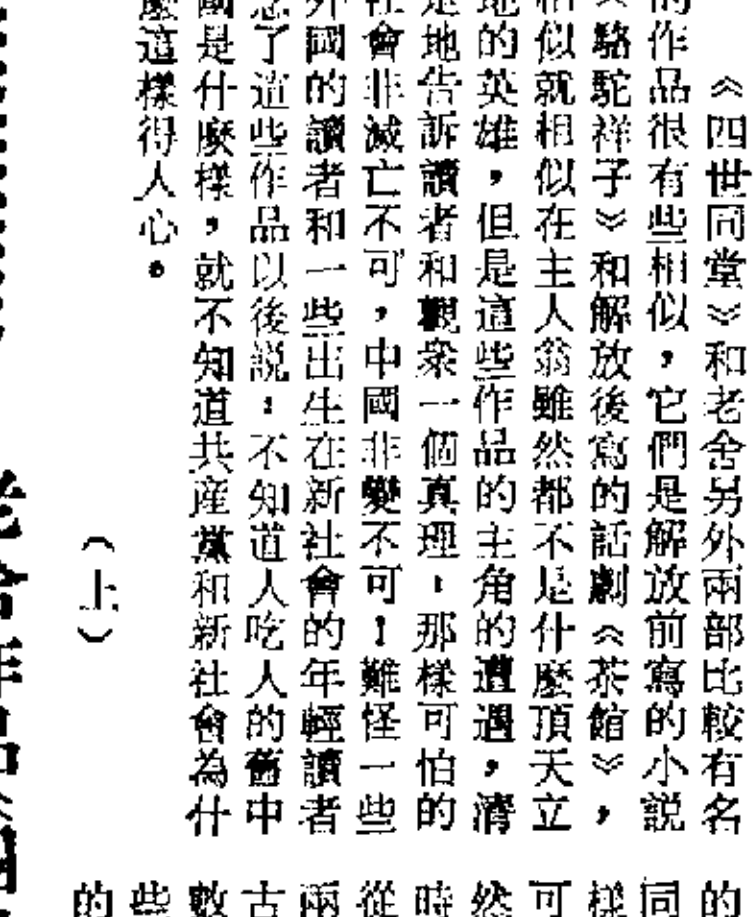 《四世同堂》和老舍另外兩部比較有名
的作品很有些相似，它們是解放前寫的小説
《駱駝祥子》和解放後寫的話劇《茶館》，
相似就相似在主人翁雖然都不是什麽頂天立
地的英雄，但是這些作品的主角的遭遇，清
楚地告訴讀者和觀衆一個真理：那樣可怕的
社會非滅亡不可，中國非變不可！難怪一些
外國的讀者和一些出生在新社會的年輕讀者
念了這些作品以後説：不知道人吃人的舊中
國是什麽樣，就不知道共産黨和新社會為什
麽這樣得人心。
（上）
的
同
樣
可
然
時
從
兩
古
數
些
的